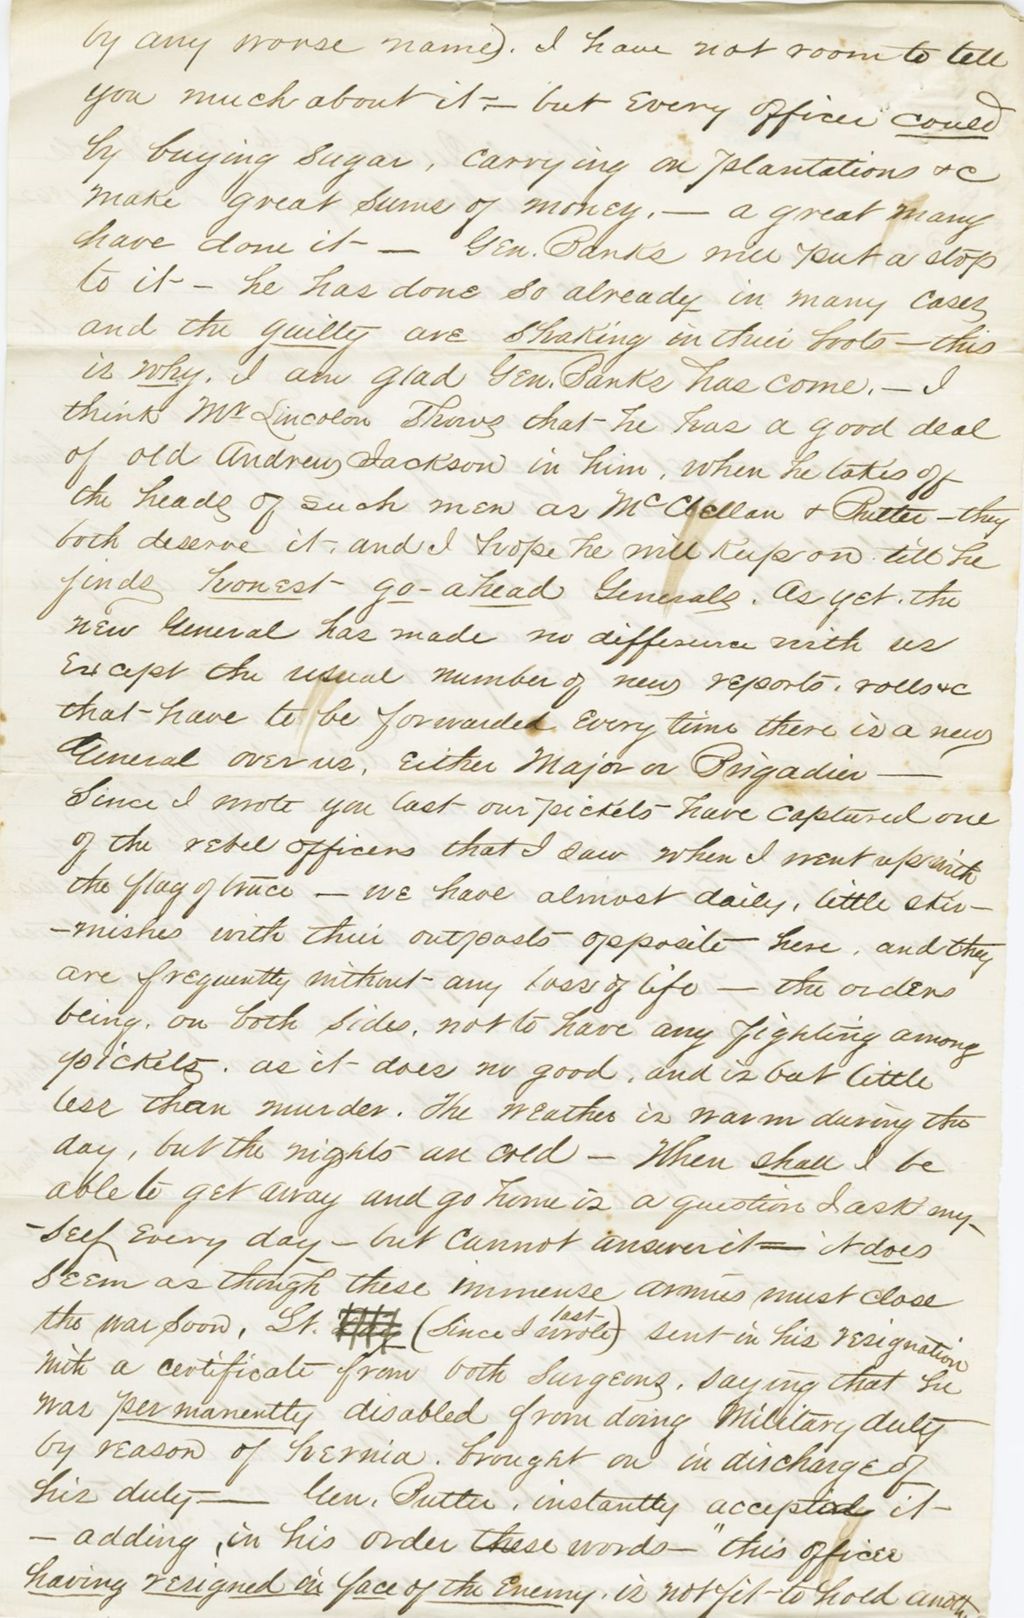 by any worse name). I have not room to tell
you much about it – but every officer could
by buying sugar, carrying on plantations &c
make great sums of money. — a great many
have done it — Gen. Banks will put a stop
to it – he has done so already in many cases
and the guilty are shaking in their boots – this
is why. I am glad Gen. Banks has come. – I
think Mr Lincolon shows that he has a good deal
of old Andrew Jackson in him, when he takes off
the heads of such men as McClellan & Butler – they
both deserve it, and I hope he will keep on till he
finds honest go-ahead Generals. As yet, the
new General has made no difference with us
except the usual number of new reports, rolls &c
that have to be forwarded every time there is a new
General over us, either Major or Brigadier —
Since I wrote you last our pickets have captured one
of the rebel officers that I saw when I went up with
the flag of truce – we have almost daily, little skir–
–mishes with their outposts opposite here, and they
are frequently without any loss of life — the orders
being, on both sides, not to have any fighting among
pickets, as it does no good, and is but little
less than murder. The weather is warm during the
day, but the nights are cold – When shall I be
able to get away and go home is a question I ask my–
–self every day – but cannot answer it – it does
seem as though these immense armies must close
the war soon. Lt. (Since I last wrote) sent in his resignation
with a certificate from both Surgeons, saying that he
was permanently disabled from doing Military duty
by reason of hernia, brought on in discharge of
his duty — Gen. Butler, instantly accepted it –
– adding, in his order these words – "this officer
having resigned in face of the Enemy, is not fit to hold anoth